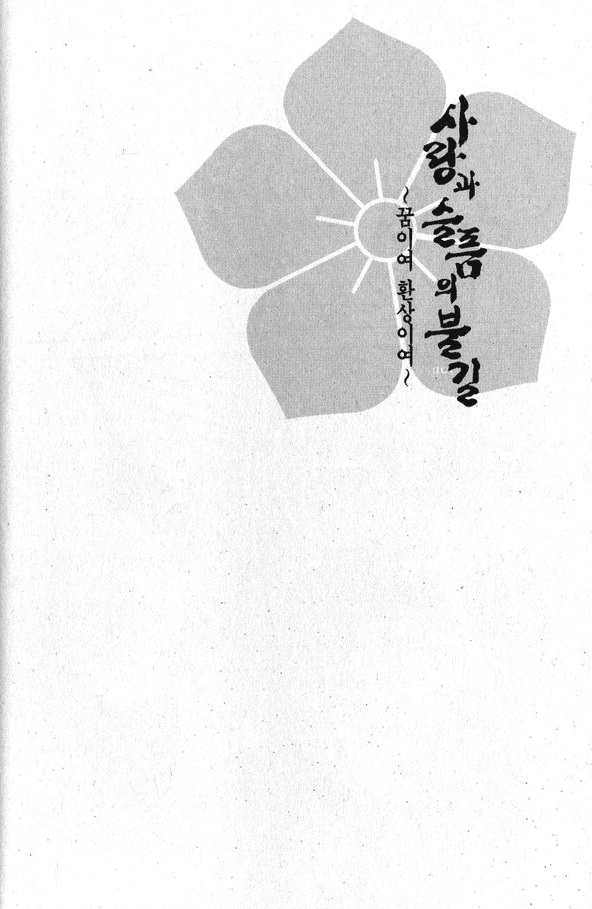 사랑과 슬픔의 불길
~꿈이여 환상이여~